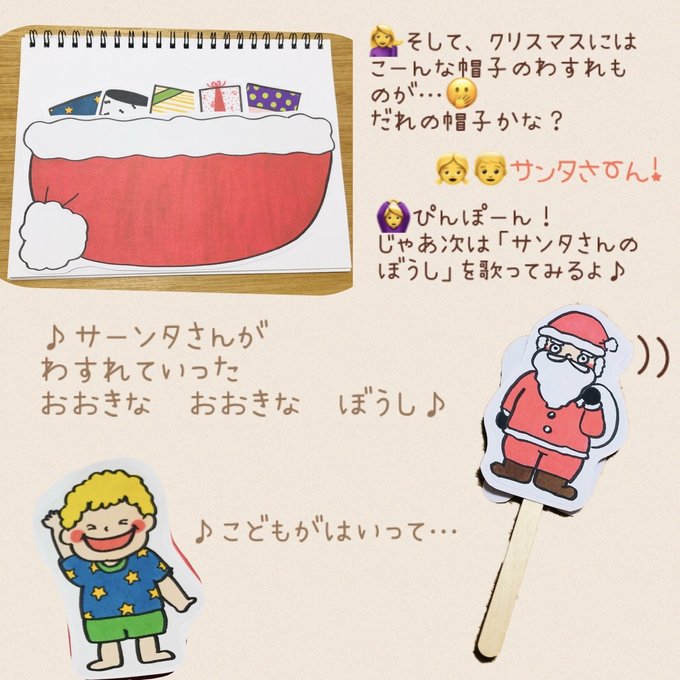 💁‍♀️そして、クリスマスには
こーんな帽子のわすれも
のが…🤭
だれの帽子かな？
👧👦サンタさーん!
🙆‍♀️ぴんぽーん！
じゃあ次は「サンタさんの
ぼうし」を歌ってみるよ♪
♪サーンタさんが
わすれていった
おおきな　おおきな　ぼうし♪
♪こどもがはいって…